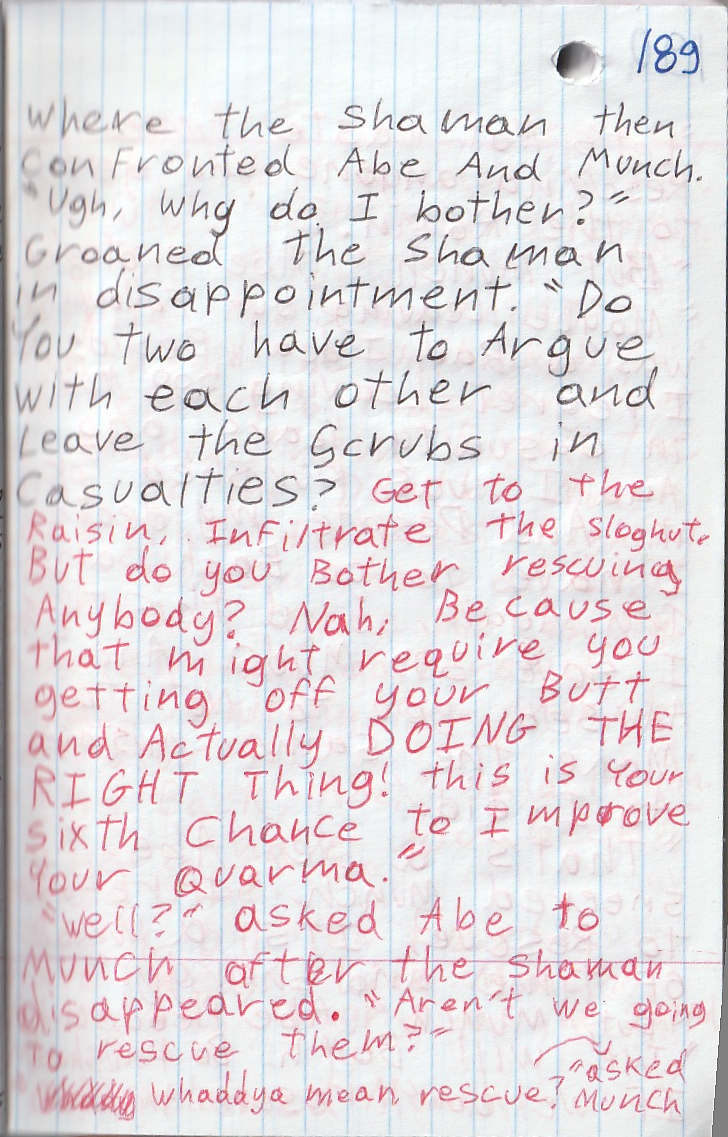 189
where the Shaman then
confronted Abe And Munch.
"Ugh, why do I bother?"
Groaned the Shaman
in disappointment. "Do
You two have to Argue
with each other and
Leave the Scrubs in
Casualties? Get to the
Raisin, Infiltrate the Sloghut.
But do you Bother rescuing
Anybody? Nah, Because
that might require you
getting off your Butt
and Actually DOING THE
RIGHT Thing! this is Your
sixth Chance to Improve
Your Quarma."
"well?" asked Abe to
Munch after the Shaman
disappeared. "Aren't we going
To rescue them?"
"asked
whaddya mean rescue? Munch